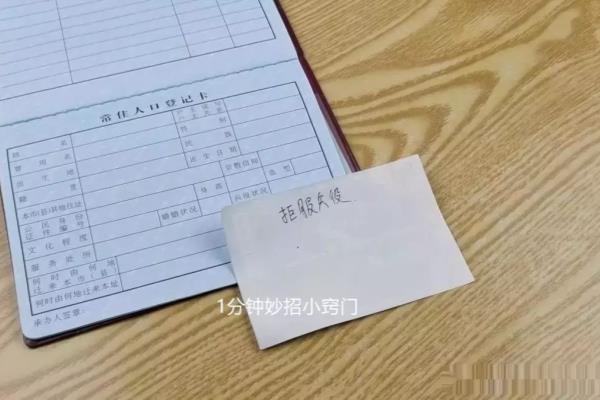 常住人口登记卡
姓名 户主或与户主关系
曾用名 性别
出生地 民族
籍贯 出生日期
本市(县)其他住址 宗教信仰
公民身份证件编号 身高 血型
文化程度 婚姻状况 兵役状况
服务处所
何时由何地迁来本市(县)
何时由何地迁来本址
承办人签章:
拒服兵役
1分钟妙招小窍门